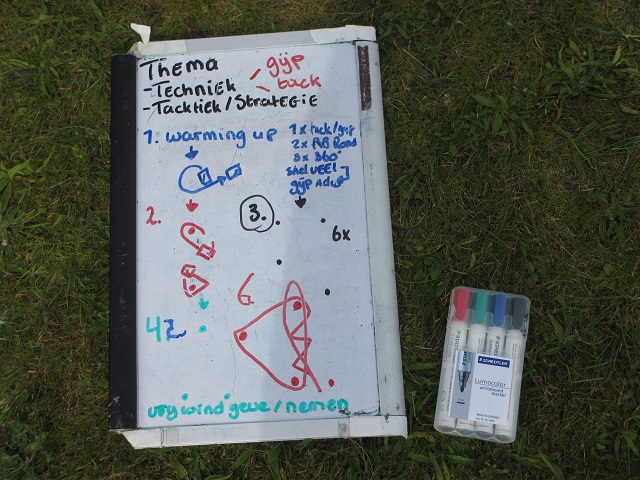 Thema
-Techniek
gijp
tack
-Tacktiek/Strategie
1. warming up
1x tack/gijp
2x AB Rond
3x 360°
snel VEEL
gijp
2.
3.
6x
6
4
vrij wind geve/nemen
STAEDTLER
Lumocolor
whiteboard
marker